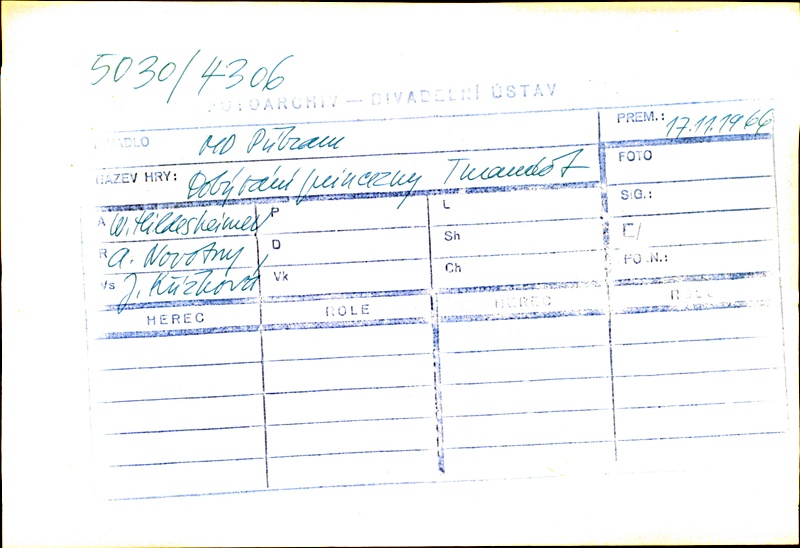 5030/4306
FOTOARCHIV — DIVADELNÍ ÚSTAV
DIVADLO MD Příbram
PREM.: 17.11.1966
NÁZEV HRY: Dobývání princezny Turandot
FOTO
A W. Hildesheimer P L
SIG.:
R A. Novotný D Sh
E/
Vs J. Křížková Vk Ch
PO.N.:
HEREC ROLE HEREC ROLE